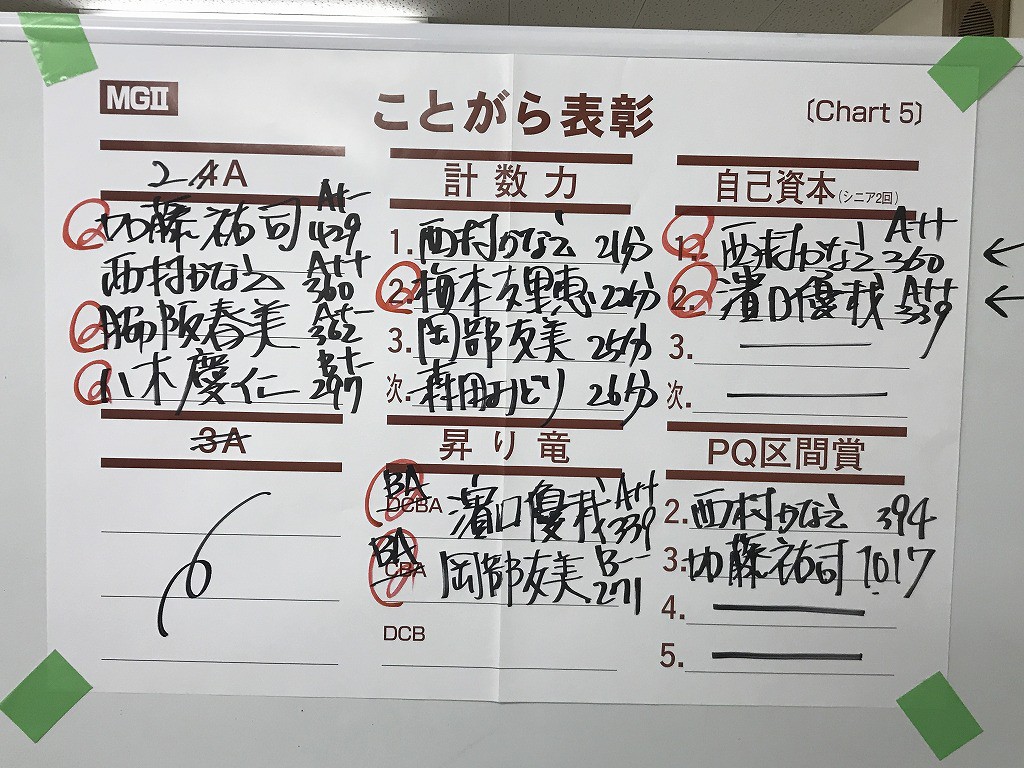 MGⅡ
ことがら表彰
〔Chart 5〕
2A
4A
加藤祐司 A+- 429
西村かなえ A++ 360
脇阪春美 A+- 362
八木慶仁 B+- 297
3A
計数力
1. 西村かなえ 21分
2. 梅本友里恵 22分
3. 岡部友美 25分
次. 森田みどり 26分
昇り竜
BA
DCBA 濱口優哉 A++ 339
BA
CBA 岡部友美 B-- 271
DCB
自己資本(シニア2回)
1. 西村かなえ A++ 360
2. 濱口優哉 A++ 339
3.
次.
PQ区間賞
2. 西村かなえ 394
3. 加藤祐司 1017
4.
5.